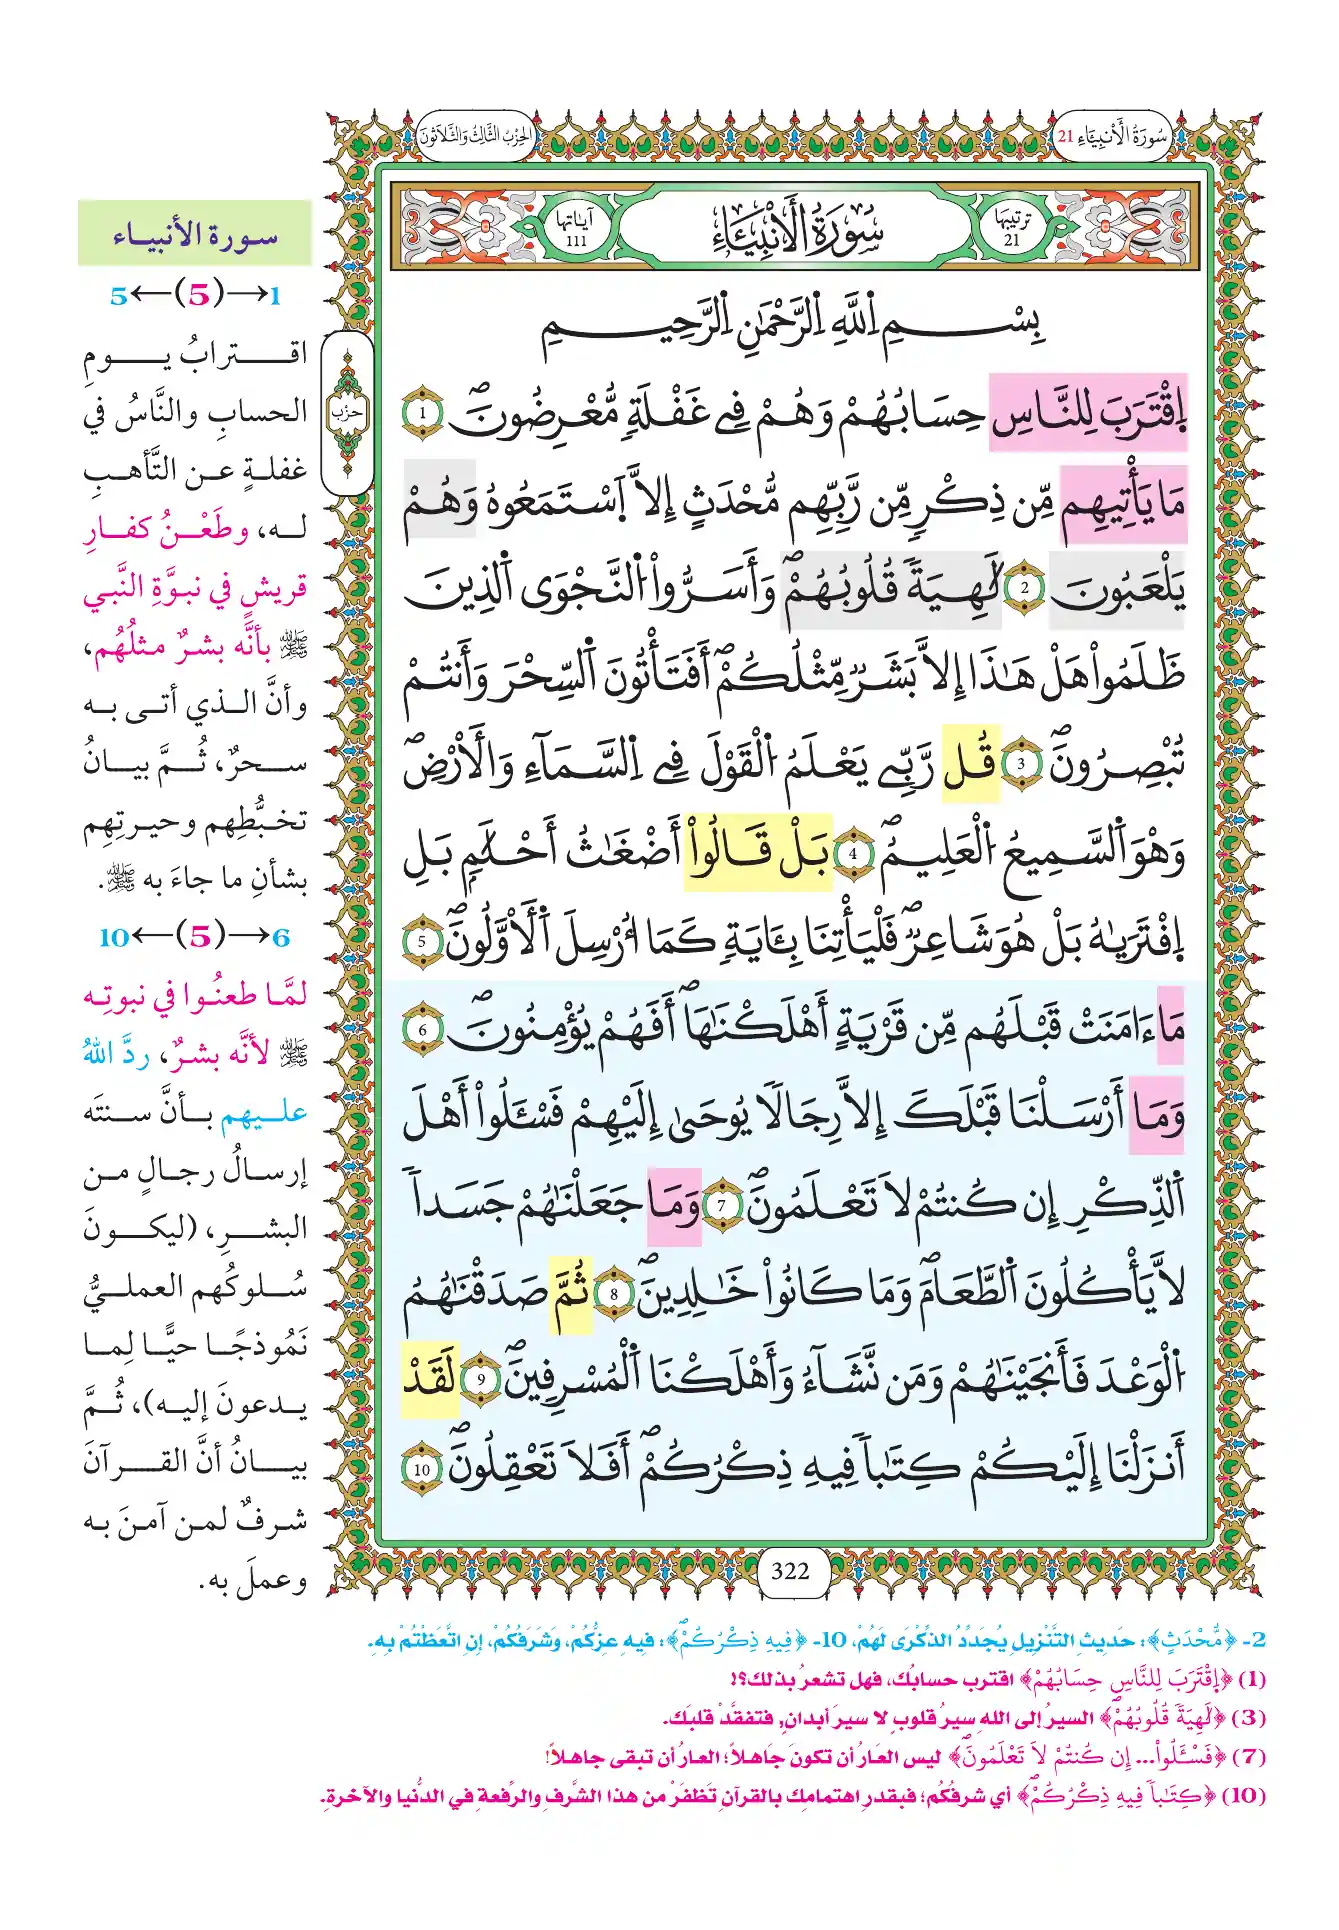 سُورَةُ الْأَنْبِيَاءِ 21
الحِزْبُ الثَّالِثُ وَالثَّلَاثُونَ
ترتيبها
21
سُورَةُ الْأَنْبِيَاءِ
آياتها
111
بِسْمِ اِللَّهِ اِلرَّحْمَٰنِ اِلرَّحِيمِ
اِقْتَرَبَ لِلنَّاسِ حِسَابُهُمْ وَهُمْ فِے غَفْلَةٖ مُّعْرِضُونَۖ 1
مَا يَأْتِيهِم مِّن ذِكْرٖ مِّن رَّبِّهِم مُّحْدَثٍ إِلَّا اَسْتَمَعُوهُ وَهُمْ
يَلْعَبُونَ 2 لَٰهِيَةٗ قُلُوبُهُمْۖ وَأَسَرُّواْ النَّجْوَى اَلذِينَ
ظَلَمُواْ هَلْ هَٰذَا إِلَّا بَشَرٞ مِّثْلُكُمْۖ أَفَتَأْتُونَ اَلسِّحْرَ وَأَنتُمْ
تُبْصِرُونَۖ 3 قُل رَّبِّے يَعْلَمُ اُلْقَوْلَ فِے اِلسَّمَآءِ وَالْأَرْضِۖ
وَهُوَ اَلسَّمِيعُ اُلْعَلِيمُۖ 4 بَلْ قَالُواْ أَضْغَٰثُ أَحْلَٰمِۢ بَلِ
اِفْتَرَيٰهُ بَلْ هُوَ شَاعِرٞۖ فَلْيَأْتِنَا بِـَٔايَةٖ كَمَا أُرْسِلَ اَلْأَوَّلُونَۖ 5
مَا ءَامَنَتْ قَبْلَهُم مِّن قَرْيَةٍ أَهْلَكْنَٰهَاۖ أَفَهُمْ يُؤْمِنُونَۖ 6
وَمَا أَرْسَلْنَا قَبْلَكَ إِلَّا رِجَالٗا يُوحَىٰ إِلَيْهِمْ فَسْـَٔلُواْ أَهْلَ
اَلذِّكْرِ إِن كُنتُمْ لَا تَعْلَمُونَۖ 7 وَمَا جَعَلْنَٰهُمْ جَسَداٗ
لَّا يَأْكُلُونَ اَلطَّعَامَۖ وَمَا كَانُواْ خَٰلِدِينَۖ 8 ثُمَّ صَدَقْنَٰهُمُ
اُلْوَعْدَ فَأَنجَيْنَٰهُمْ وَمَن نَّشَآءُ وَأَهْلَكْنَا اَلْمُسْرِفِينَۖ 9 لَقَدْ
أَنزَلْنَا إِلَيْكُمْ كِتَٰباٗ فِيهِ ذِكْرُكُمْۖ أَفَلَا تَعْقِلُونَۖ 10
حزب
322
سورة الأنبياء
1→(5)←5
اقترابُ يومِ
الحسابِ والنَّاسُ في
غفلةٍ عن التَّأهبِ
له، وطَعْنُ كفارِ
قريشٍ في نبوَّةِ النَّبي
ﷺ بأنَّه بشرٌ مثلُهُم،
وأنَّ الذي أتى به
سحرٌ، ثُمَّ بيانُ
تخبُّطِهم وحيرتِهم
بشأنِ ما جاءَ به ﷺ.
6→(5)←10
لمَّا طعنُوا في نبوتِه
ﷺ لأنَّه بشرٌ، ردَّ اللهُ
عليهم بأنَّ سنتَه
إرسالُ رجالٍ من
البشرِ، (ليكونَ
سُلوكُهم العمليُّ
نَمُوذجًا حيًّا لِما
يدعونَ إليه)، ثُمَّ
بيانُ أنَّ القرآنَ
شرفٌ لمن آمنَ به
وعملَ به.
2- ﴿مُّحْدَثٍ﴾: حَدِيثِ التَّنْزِيلِ يُجَدِّدُ الذِّكْرَى لَهُمْ، 10- ﴿فِيهِ ذِكْرُكُمْۖ﴾: فِيهِ عِزُّكُمْ، وَشَرَفُكُمْ، إِنِ اتَّعَظْتُمْ بِهِ.
(1) ﴿اِقْتَرَبَ لِلنَّاسِ حِسَابُهُمْ﴾ اقترب حسابُك، فهل تشعرُ بذلك؟!
(3) ﴿لَٰهِيَةٗ قُلُوبُهُمْۖ﴾ السيرُ إلى اللهِ سيرُ قلوبٍ لا سيرَ أبدانٍ, فتفقَّدْ قلبَك.
(7) ﴿فَسْـَٔلُواْ... إِن كُنتُمْ لَا تَعْلَمُونَۖ﴾ ليس العَارُ أن تكونَ جَاهلاً؛ العارُ أن تبقى جاهلاً!
(10) ﴿كِتَٰباٗ فِيهِ ذِكْرُكُمْۖ﴾ أي شرفُكُم؛ فبقدرِ اهتمامِك بالقرآنِ تَظفَرْ من هذا الشَّرفِ والرِّفعةِ في الدُّنيا والآخرةِ.